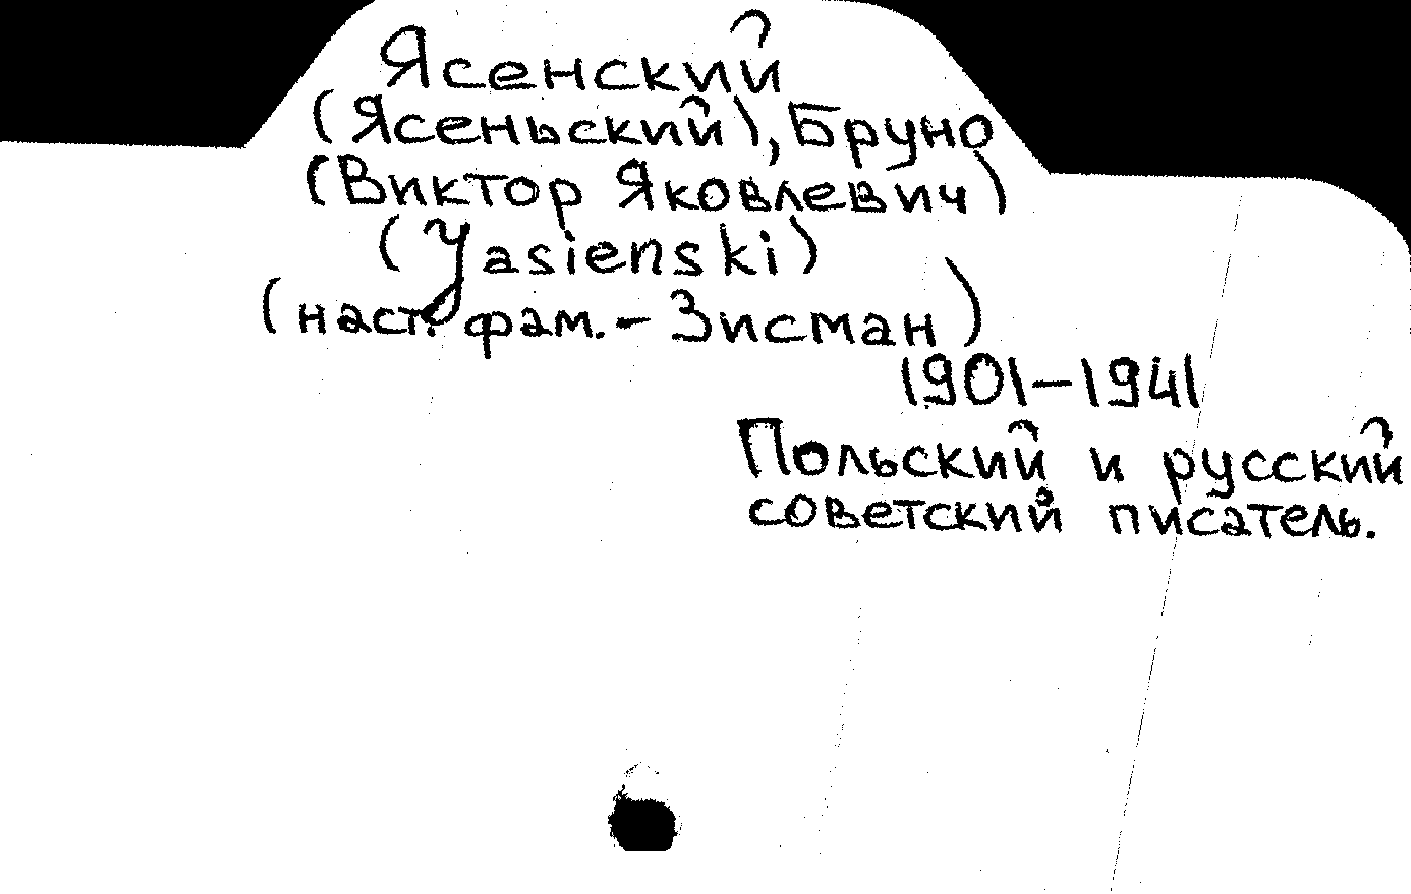 Ясенский
(Ясеньский), Бруно
(Виктор Яковлевич)
(Yasienski)
(наст. фам. – Зисман)
1901–1941
Польский и русский
советский писатель.